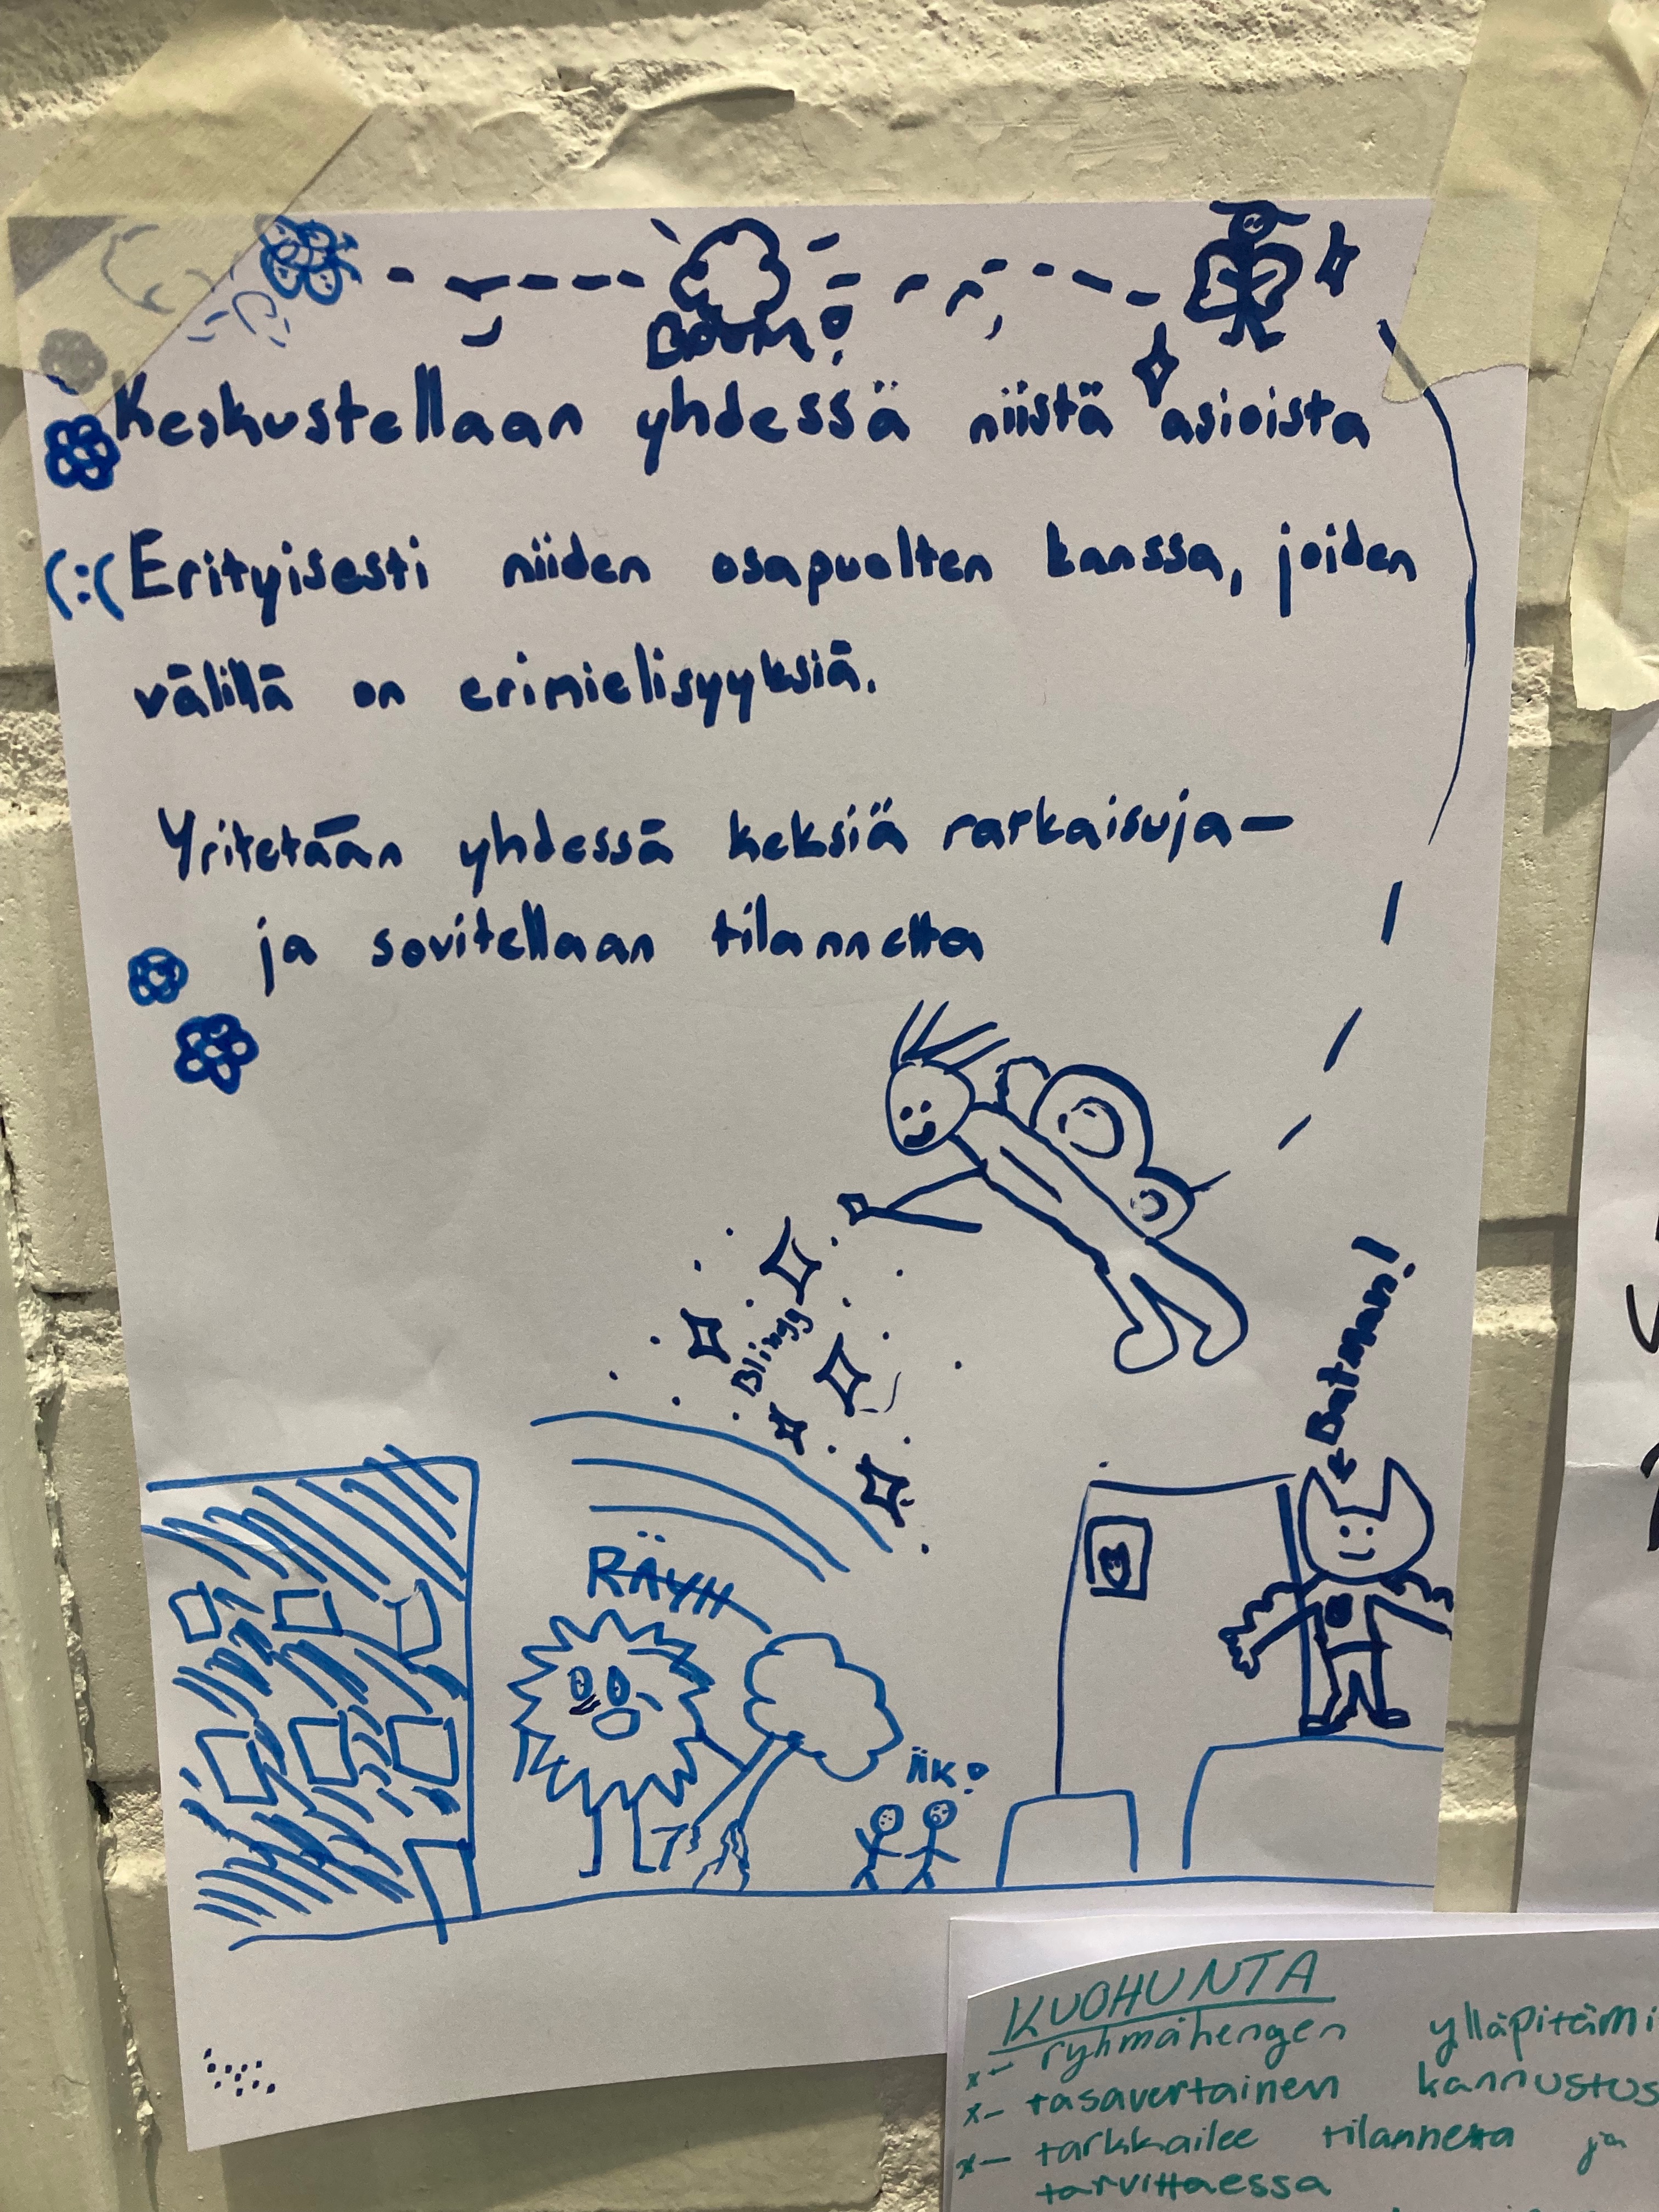 Boum!
Keskustellaan yhdessä niistä asioista
(:( Erityisesti niiden osapuolten kanssa, joiden
välillä on erimielisyyksiä.
Yritetään yhdessä keksiä ratkaisuja-
ja sovitellaan tilannetta
Blingg
Batman!
RÄYH
IIK!
KUOHUNTA
x- ryhmähengen ylläpitämi
x- tasavertainen kannustus
x- tarkkailee tilannetta ja
tarvittaessa